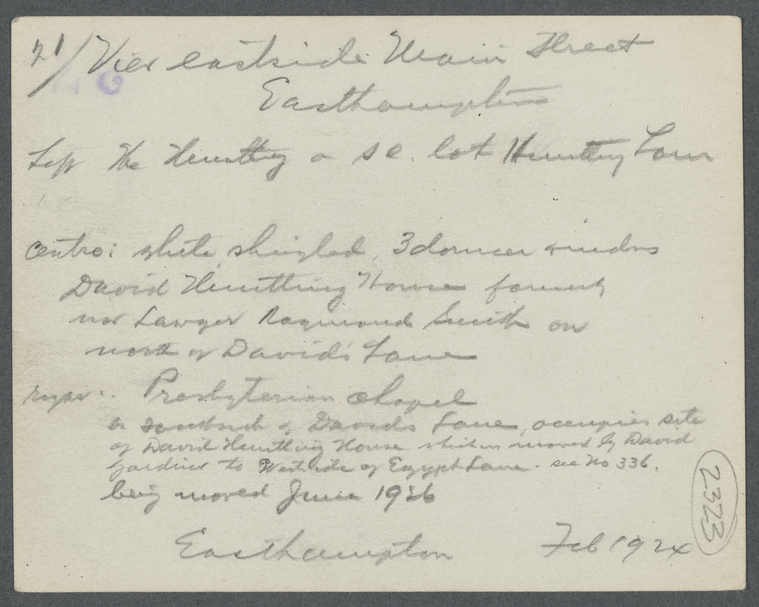 21/ View eastside Main Street
Easthampton
Left The Huntting a SE. lot Huntting Lane
centre: white, shingled, 3 dormer windows
David Huntting House formerly
now Lawyer Raymond Smith on
north of David's Lane
right: Presbyterian chapel
on south side of Davids Lane, occupies site
of David Huntting House which is moved by David
Gardiner to West side of Egypt Lane. see No 336.
being moved June 1926
Easthampton Feb 1924
2323